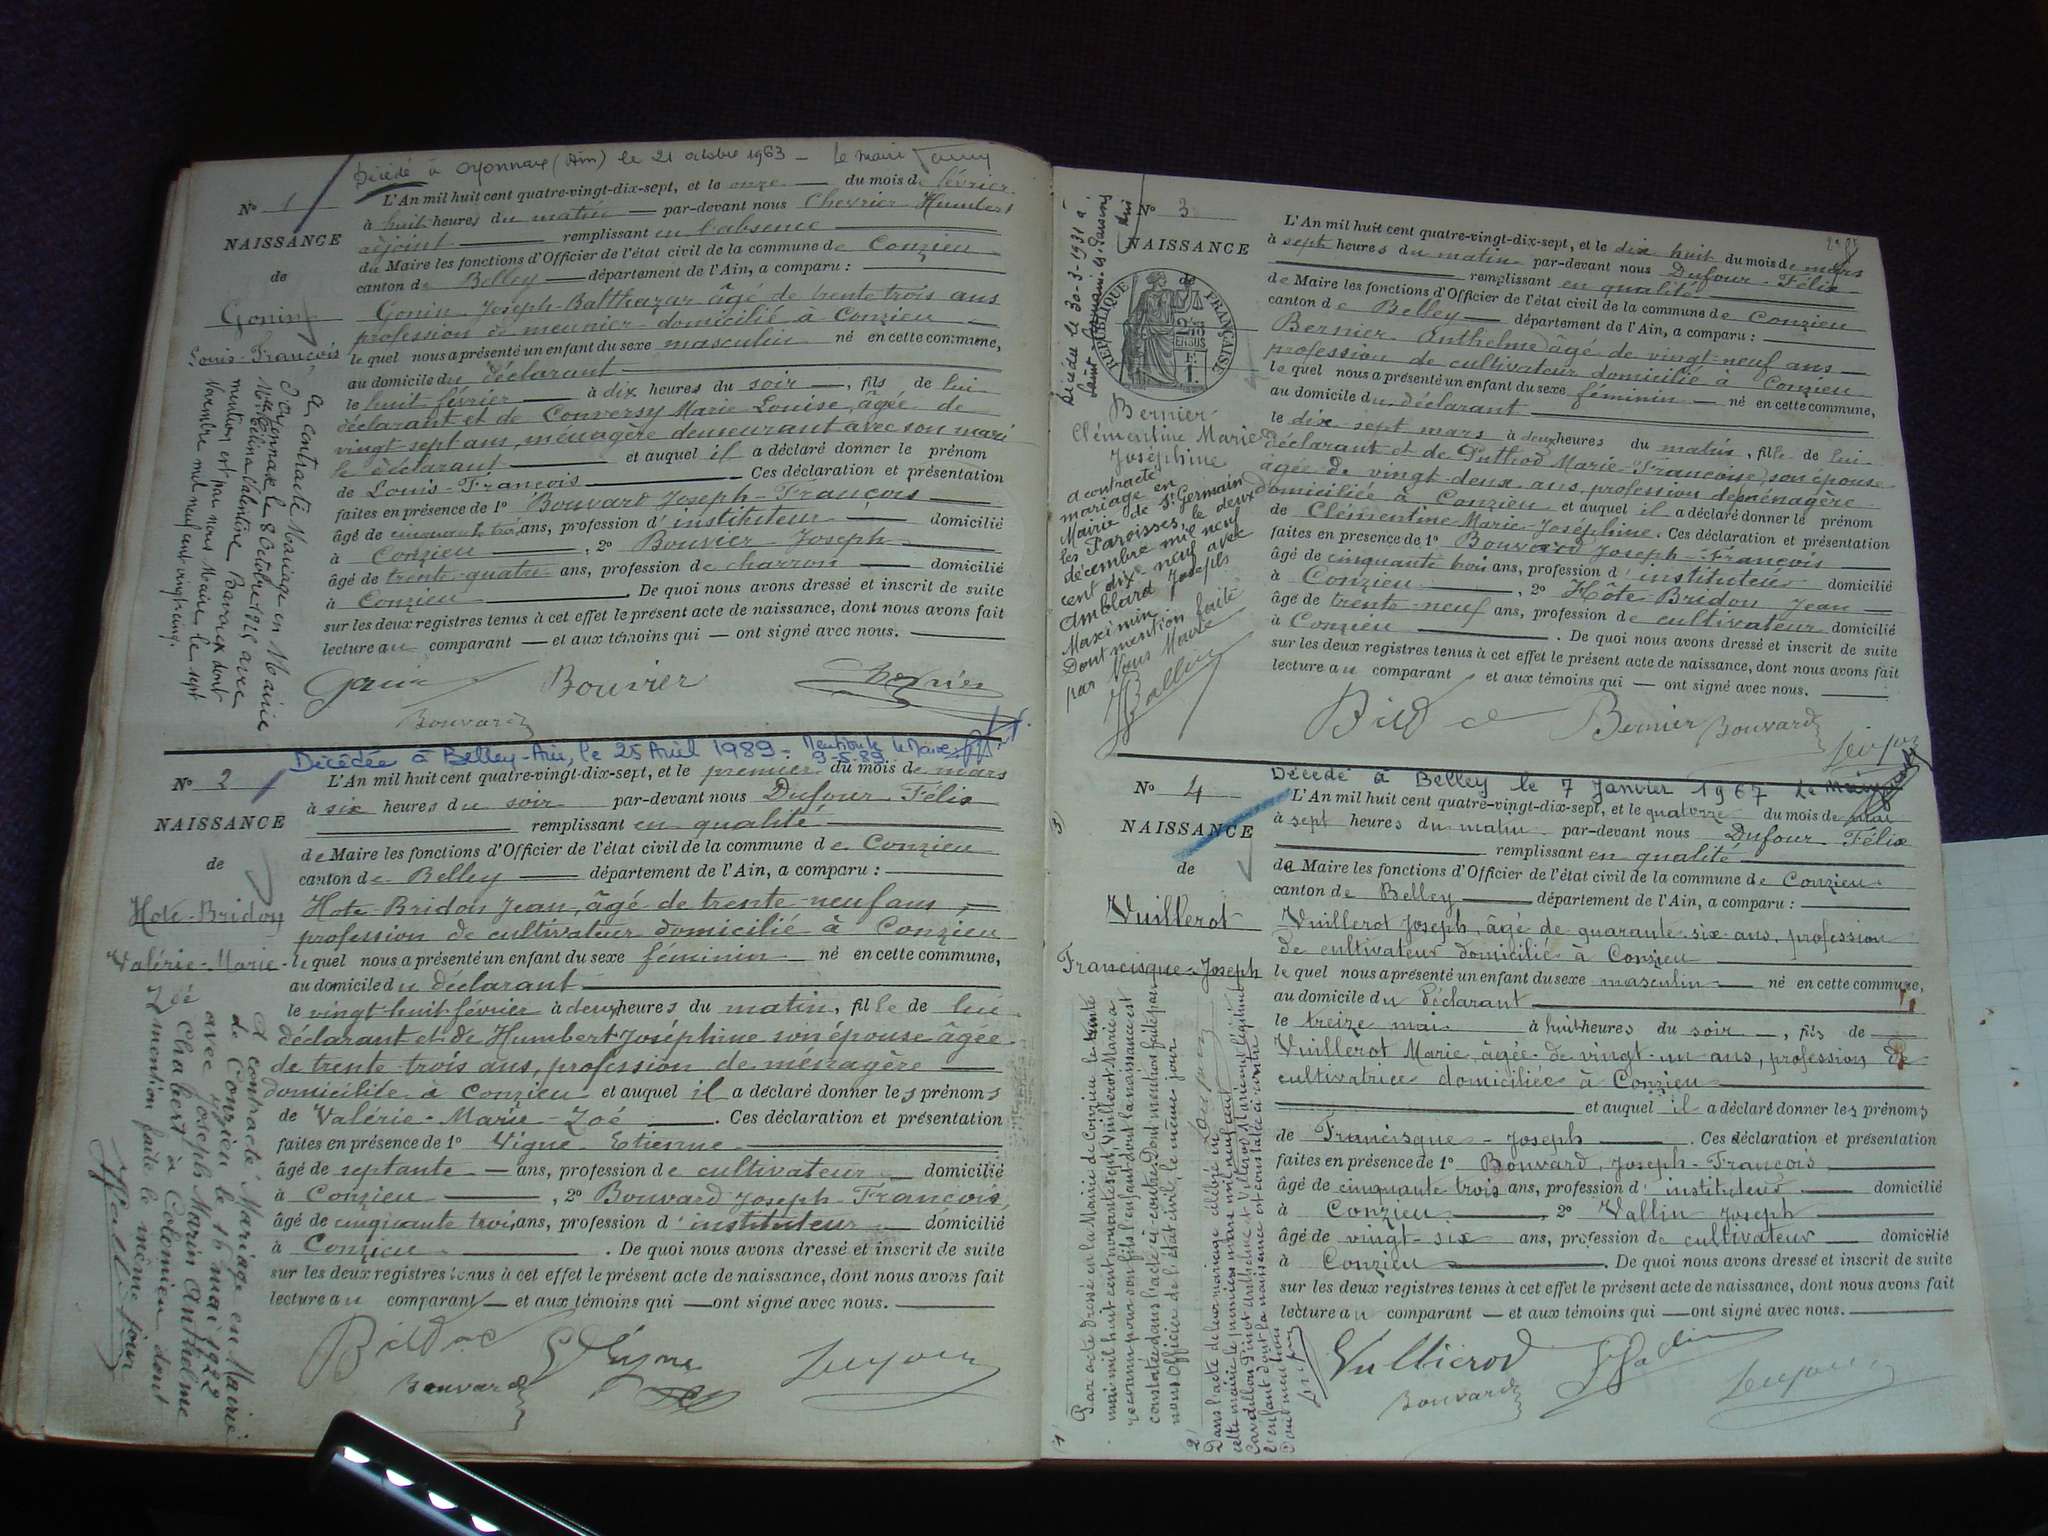 Décédé à Oyonnax (Ain) le 21 octobre 1963 - Le maire
N° 1
NAISSANCE
de
Gonin
Louis-François
L'An mil huit cent quatre-vingt-dix-sept, et le onze du mois de février
à huit heures du matin par-devant nous Chevrier Humbert
adjoint remplissant en l'absence
du Maire les fonctions d'Officier de l'état civil de la commune de Conzieu
canton de Belley département de l'Ain, a comparu :
Gonin Joseph Balthazar âgé de trente trois ans
profession de meunier domicilié à Conzieu
lequel nous a présenté un enfant du sexe masculin né en cette commune,
au domicile du déclarant
le huit février à dix heures du soir, fils de lui
déclarant et de Conversy Marie Louise, âgée de
vingt sept ans, ménagère demeurant avec son mari
le déclarant et auquel il a déclaré donner le prénom
de Louis-François Ces déclaration et présentation
faites en présence de 1° Bouvard Joseph-François
âgé de cinquante trois ans, profession d'instituteur domicilié
à Conzieu, 2° Bouvier Joseph
âgé de trente quatre ans, profession de charron domicilié
à Conzieu. De quoi nous avons dressé et inscrit de suite
sur les deux registres tenus à cet effet le présent acte de naissance, dont nous avons fait
lecture au comparant et aux témoins qui ont signé avec nous.
A contracté Mariage en Mairie
d'Oyonnax le 8 Octobre 1925 avec
Valentine
mention est par nous Maire le sept
Novembre mil neuf cent vingt cinq.
Gonin Bouvier
Bouvard
Décédée à Belley-Ain, le 25 Avril 1989 - Mention le 9-5-89 le Maire
N° 2
NAISSANCE
de
Hote-Bridon
Valérie-Marie-
Zoé
L'An mil huit cent quatre-vingt-dix-sept, et le premier du mois de mars
à six heures du soir par-devant nous Dufour Félix
remplissant en qualité
de Maire les fonctions d'Officier de l'état civil de la commune de Conzieu
canton de Belley département de l'Ain, a comparu :
Hote-Bridon Jean, âgé de trente-neuf ans,
profession de cultivateur domicilié à Conzieu
lequel nous a présenté un enfant du sexe féminin né en cette commune,
au domicile du déclarant
le vingt huit février à deux heures du matin, fille de lui
déclarant et de Humbert Joséphine son épouse âgée
de trente trois ans, profession de ménagère
domiciliée à Conzieu et auquel il a déclaré donner les prénoms
de Valérie-Marie-Zoé. Ces déclaration et présentation
faites en présence de 1° Vigne Etienne
âgé de septante ans, profession de cultivateur domicilié
à Conzieu, 2° Bouvard Joseph François
âgé de cinquante trois ans, profession d'instituteur domicilié
à Conzieu. De quoi nous avons dressé et inscrit de suite
sur les deux registres tenus à cet effet le présent acte de naissance, dont nous avons fait
lecture au comparant et aux témoins qui ont signé avec nous.
A contracté Mariage en Mairie
de Conzieu le 16 mai 1922
avec Joseph Marin Anthelme
Chabert à Colomieu dont
mention faite le même jour
Bouvard
N° 3
NAISSANCE
de
RÉPUBLIQUE FRANÇAISE
Bernier
Clémentine Marie
Joséphine
Décédée le 30-3-1931 à
L'An mil huit cent quatre-vingt-dix-sept, et le dix huit du mois de mars
à sept heures du matin par-devant nous Dufour Félix
remplissant en qualité
de Maire les fonctions d'Officier de l'état civil de la commune de Conzieu
canton de Belley département de l'Ain, a comparu :
Bernier Anthelme âgé de vingt-neuf ans
profession de cultivateur domicilié à Conzieu
lequel nous a présenté un enfant du sexe féminin né en cette commune,
au domicile du déclarant
le dix-sept mars à deux heures du matin, fille de lui
déclarant et de Puthod Marie Françoise son épouse
âgée de vingt-deux ans profession de ménagère
domiciliée à Conzieu et auquel il a déclaré donner le prénom
de Clémentine Marie-Joséphine. Ces déclaration et présentation
faites en présence de 1° Bouvard Joseph-François
âgé de cinquante trois ans, profession d'instituteur domicilié
à Conzieu, 2° Hôte-Bridon Jean
âgé de trente-neuf ans, profession de cultivateur domicilié
à Conzieu. De quoi nous avons dressé et inscrit de suite
sur les deux registres tenus à cet effet le présent acte de naissance, dont nous avons fait
lecture au comparant et aux témoins qui ont signé avec nous.
a contracté
mariage en
Mairie de St Germain
les Paroisses, le deux
décembre mil neuf
cent dix neuf avec
Amblard Joseph
Maximin
Dont mention faite
par Nous Maire
Bernier Bouvard
Décédé à Belley le 7 Janvier 1967 Le Maire
N° 4
NAISSANCE
de
Vuillerot
Francisque-Joseph
L'An mil huit cent quatre-vingt-dix-sept, et le quatorze du mois de mai
à sept heures du matin par-devant nous Dufour Félix
remplissant en qualité
de Maire les fonctions d'Officier de l'état civil de la commune de Conzieu
canton de Belley département de l'Ain, a comparu :
Vuillerot Joseph, âgé de quarante six ans, profession
de cultivateur domicilié à Conzieu
lequel nous a présenté un enfant du sexe masculin né en cette commune,
au domicile du déclarant
le treize mai à huit heures du soir, fils de
Vuillerot Marie, âgée de vingt un ans, profession de
cultivatrice domiciliée à Conzieu
et auquel il a déclaré donner les prénoms
de Francisque-Joseph. Ces déclaration et présentation
faites en présence de 1° Bouvard, Joseph-François
âgé de cinquante trois ans, profession d'instituteur domicilié
à Conzieu, 2° Vallin Joseph
âgé de vingt-six ans, profession de cultivateur domicilié
à Conzieu. De quoi nous avons dressé et inscrit de suite
sur les deux registres tenus à cet effet le présent acte de naissance, dont nous avons fait
lecture au comparant et aux témoins qui ont signé avec nous.
1) Par acte dressé en la Mairie de Conzieu le trente
mai mil huit cent nonante sept, Vuillerot Marie a
reconnu pour son fils l'enfant dont la naissance est
constatée dans l'acte ci-contre. Dont mention faite par
nous Officier de l'état civil, le même jour
2) Dans l'acte de leur mariage célébré en
cette mairie le premier mars mil neuf cent
l'enfant dont la naissance est constatée ci-contre
Dont mention
Bouvard